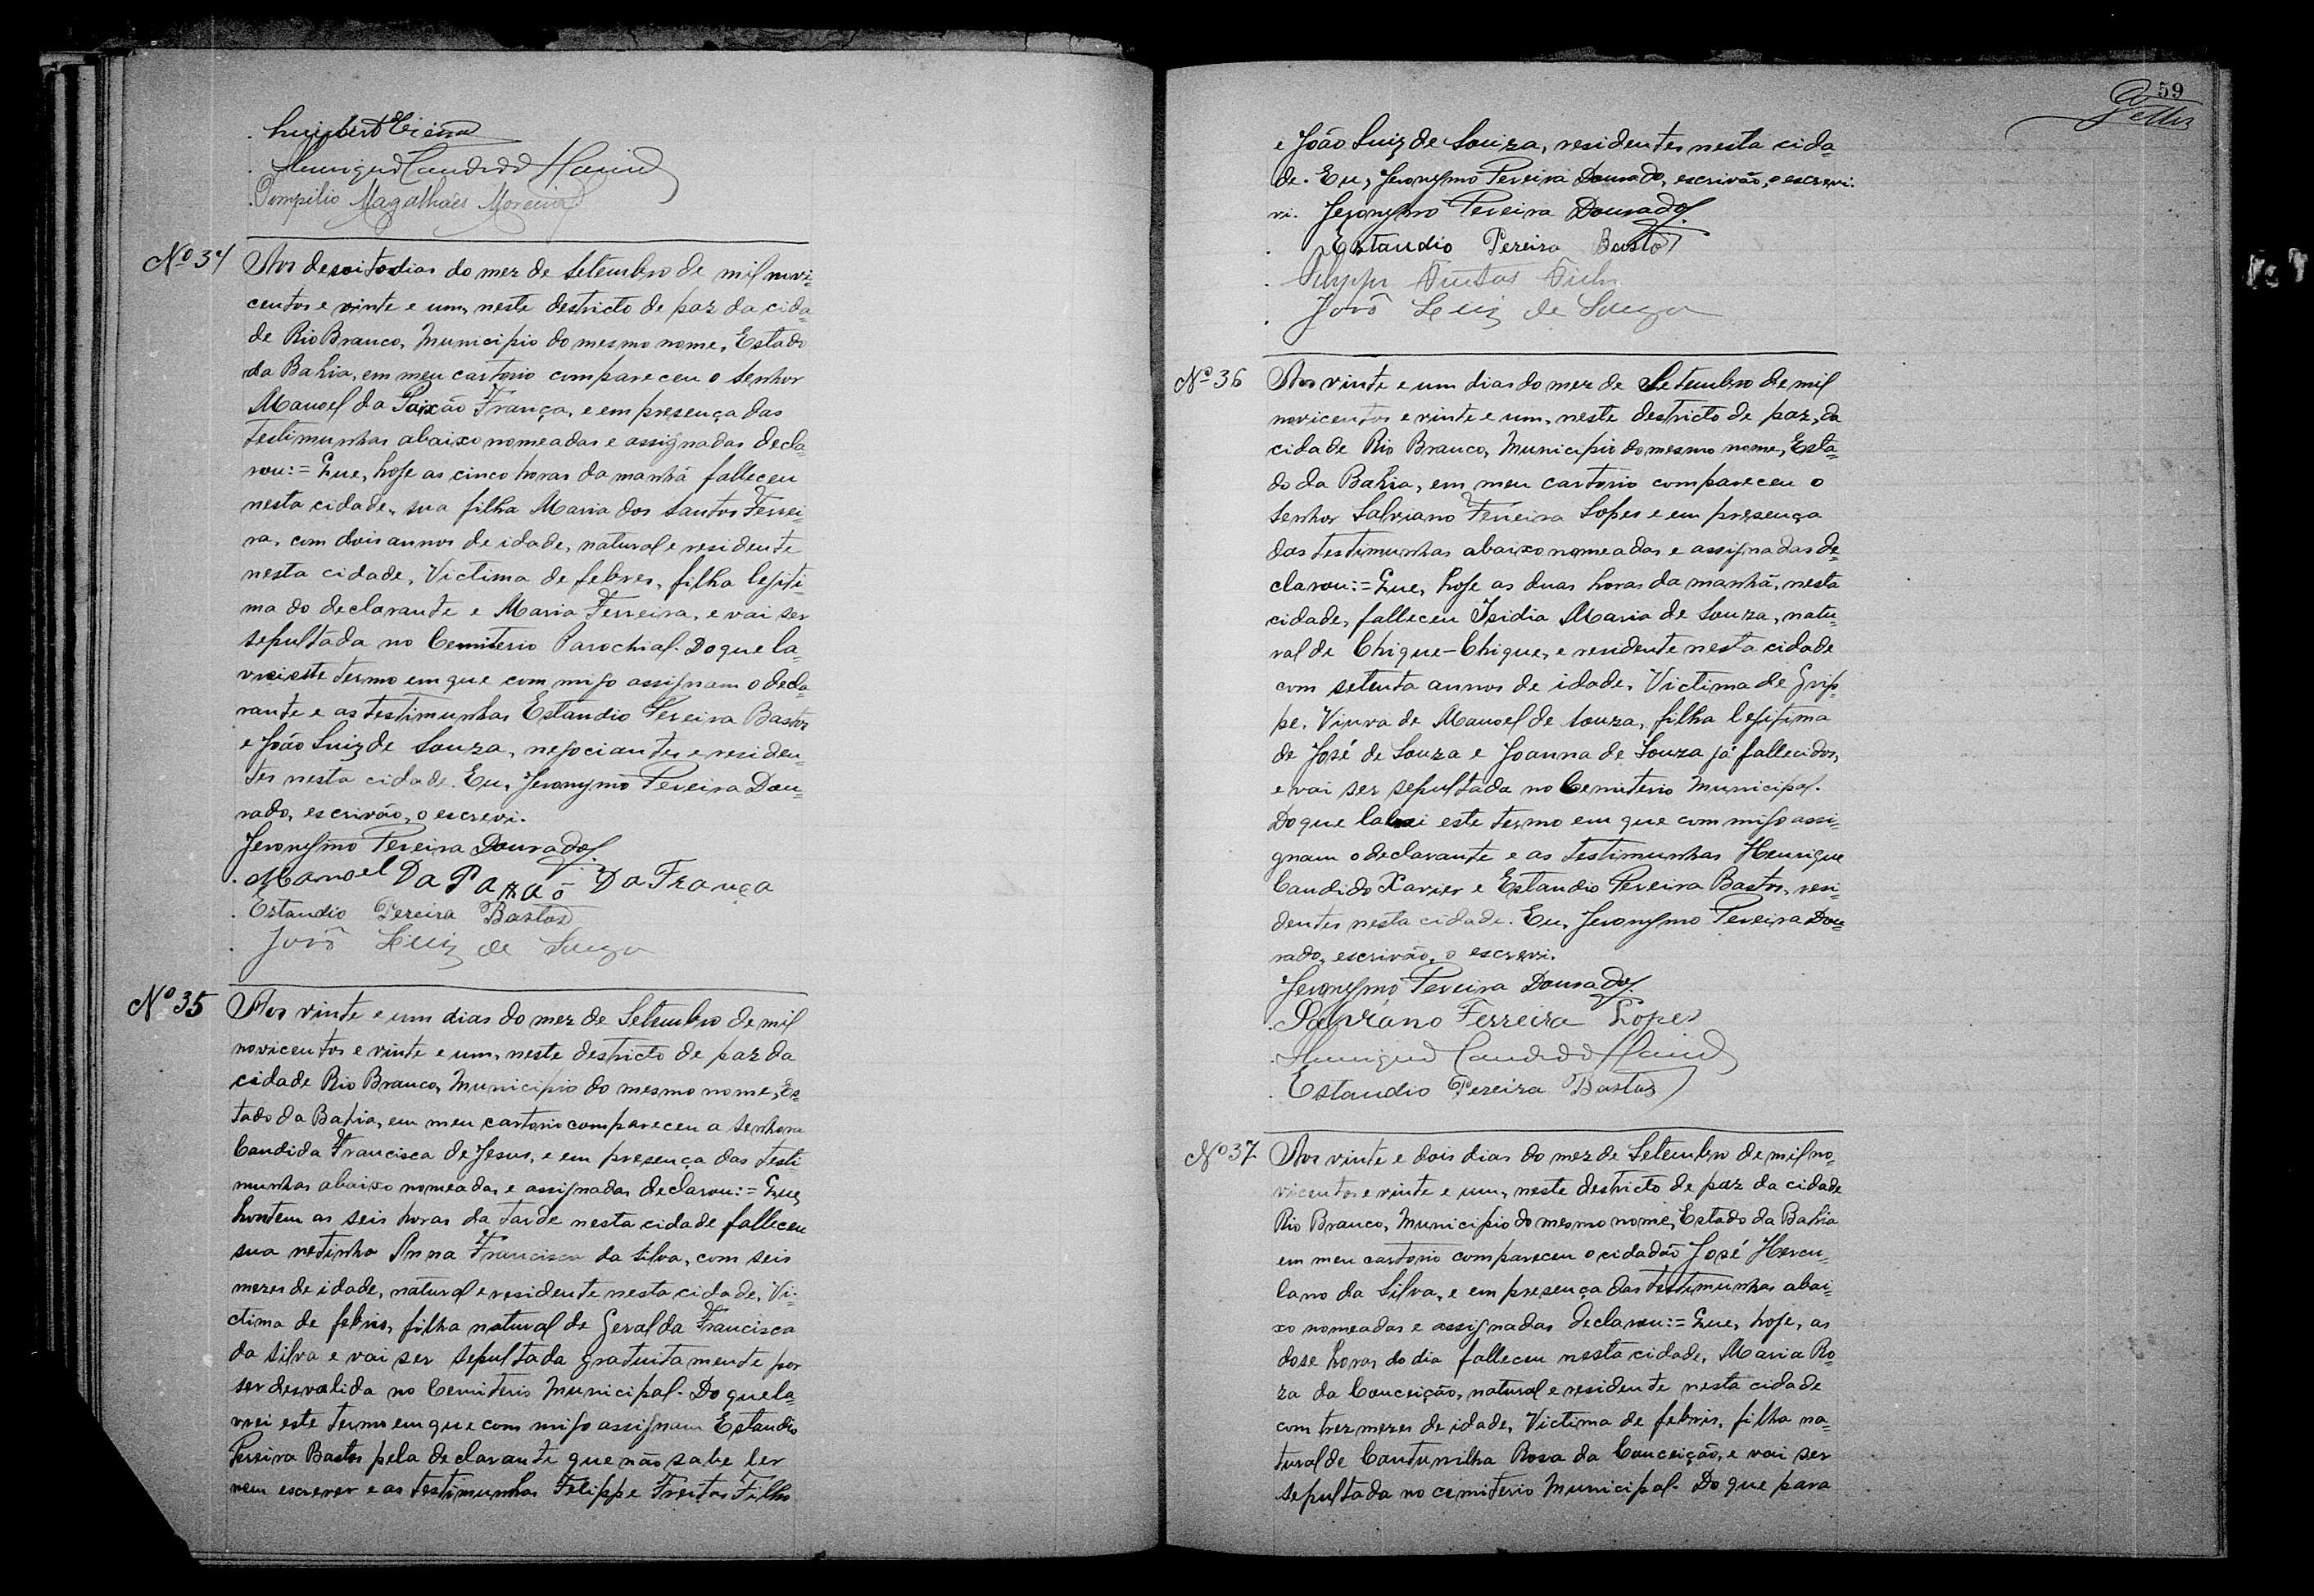 Henrique Candido Xavier
Pompilio Magalhães Moreira
Nº 34 Aos desoito dias do mez de Setembro de mil novi-
centos e vinte e um, neste destricto de paz da cida-
de Rio Branco, Municipio do mesmo nome, Estado
da Bahia, em meu cartorio compareceu o Senhor
Manoel da Paixão França, e em presença das
testimunhas abaixo nomeadas e assignadas decla-
rou:= Que, hoje as cinco horas da manhã falleceu
nesta cidade, sua filha Maria dos Santos Ferrei-
ra, com dois annos de idade, natural e residente
nesta cidade, Victima de febres, filha legiti-
ma do declarante e Maria Ferreira, e vai ser
sepultada no Cemiterio Parochial. Do que la-
vrei este termo em que com migo assignam o decla-
rante e as testimunhas Estandio Pereira Bastos
e João Luiz de Souza, negociantes e residen-
tes nesta cidade. Eu, Jeronymo Pereira Dou-
rado, escrivão, o escrevi.
Jeronymo Pereira Dourado.
Manoel Da Paxaõ Da França
Estandio Pereira Bastos
Jorô Luiz de Souza
Nº 35 Aos vinte e um dias do mez de Setembro de mil
novicentos e vinte e um, neste destricto de paz da
cidade Rio Branco, Municipio do mesmo nome, Es-
tado da Bahia, em meu cartorio compareceu a Senhora
Candida Francisca de Jesus, e em presença das testi
munhas abaixo nomeadas e assignadas declarou:= Que,
hontem as seis horas da tarde nesta cidade falleceu
sua netinha Anna Francisca da Silva, com seis
mezes de idade, natural e residente nesta cidade, Vi-
ctima de febres, filha natural de Geralda Francisca
da Silva e vai ser sepultada gratuitamente por
ser desvalida no Cemiterio Municipal. Do que la-
vrei este termo em que com migo assignam Estandio
Pereira Bastos pela declarante que não sabe ler
nem escrever e as testimunhas Felippe Freitas Filho
59
e João Luiz de Souza, residentes nesta cida-
de. Eu, Jeronymo Pereira Dourado, escrivão, o escrevi.
vi. Jeronymo Pereira Dourado.
Estandio Pereira Bastos
Jorô Luiz de Souza
Nº 36 Aos vinte e um dias do mez de Setembro de mil
novicentos e vinte e um, neste destricto de paz, da
cidade Rio Branco, Municipio do mesmo nome, Esta-
do da Bahia, em meu cartorio compareceu o
Senhor Salviano Ferreira Lopes e em presença
das testimunhas abaixo nomeadas e assignadas de-
clarou:= Que, hoje as duas horas da manhã, nesta
cidade, falleceu Isidia Maria de Souza, natu-
ral de Chique-Chique, e residente nesta cidade
com setenta annos de idade, Victima de Grip-
pe. Viuva de Manoel de Souza, filha legitima
de José de Souza e Joanna de Souza já fallecidos,
e vai ser sepultada no Cemiterio Municipal.
Do que lavrei este termo em que com migo assi-
gnam o declarante e as testimunhas Henrique
Candido Xavier e Estandio Pereira Bastos, resi-
dentes nesta cidade. Eu, Jeronymo Pereira Dou-
rado, escrivão, o escrevi.
Jeronymo Pereira Dourado.
Salviano Ferreira Lopes
Henrique Candido Xavier
Estandio Pereira Bastos
Nº 37 Aos vinte e dois dias do mez de Setembro de mil no-
vicentos e vinte e um, neste destricto de paz da cidade
Rio Branco, Municipio do mesmo nome, Estado da Bahia
em meu cartorio compareceu o cidadão José Hercu-
lano da Silva, e em presença das testimunhas abai-
xo nomeadas e assignadas declarou:= Que, hoje, as
dose horas do dia falleceu nesta cidade, Maria Ro-
za da Conceição, natural e residente nesta cidade
com trez mezes de idade, Victima de febres, filha na-
tural de Cantunilha Rosa da Conceição, e vai ser
sepultada no cemiterio Municipal. Do que para